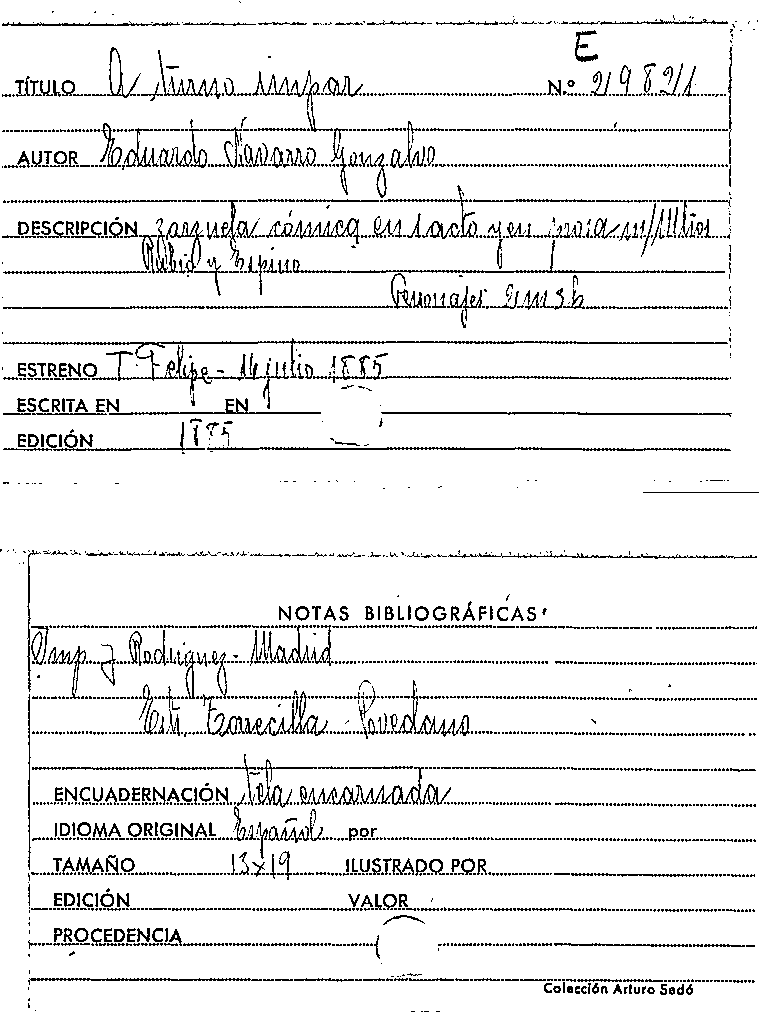 E
TÍTULO A turno impar N.º 21982/1
AUTOR Eduardo Navarro Gonzalvo
DESCRIPCIÓN zarzuela cómica en 1 acto y en prosa m/
Rubio y Espino
Personajes 2m 3h
ESTRENO T Felipe - 14 julio 1885
ESCRITA EN EN
EDICIÓN 1885
NOTAS BIBLIOGRÁFICAS
Imp J Rodriguez - Madrid
Torrecilla - Povedano
ENCUADERNACIÓN tela encarnada
IDIOMA ORIGINAL Español por
TAMAÑO 13x19 ILUSTRADO POR
EDICIÓN VALOR
PROCEDENCIA
Colección Arturo Sedó